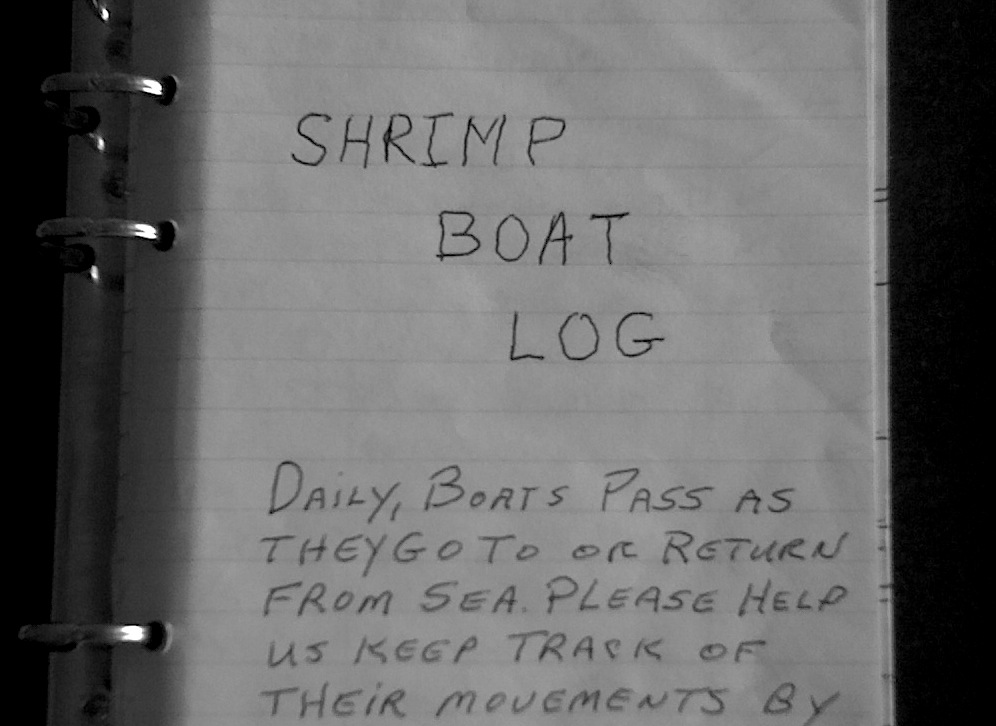 SHRIMP
BOAT
LOG
DAILY, BOATS PASS AS
THEY GO TO OR RETURN
FROM SEA. PLEASE HELP
US KEEP TRACK OF
THEIR MOVEMENTS BY